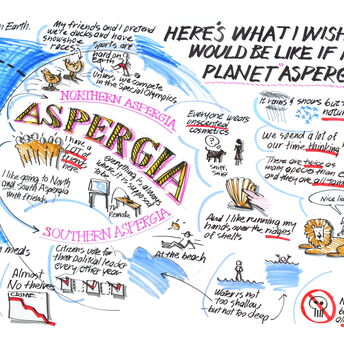 n Earth.
My friends and I pretend
we're ducks and have
snowshoe
races.
Sports are
hard on
Earth
Unless we compete
in the Special Olympics
HERE'S WHAT I WISH
WOULD BE LIKE IF I
PLANET "ASPERG
NORTHERN ASPERGIA
ASPERGIA
SOUTHERN ASPERGIA
I have a
LOT of
friends
here
I like going to North
and South Aspergia
with friends
Everything is always
here,
TV
Remote
Everyone wears
unscented
cosmetics
Smell,
It rains & snows but
natur
We spend a lot of
our time thinking
There are twice as
many species than E
and they are all tam
Nice li
And I like running my
hands over the ridges
of shells
At the beach
Citizens vote for
their political leader
every other year
meals
Almost
No thieves
CRIME
Water is not
too shallow,
but not too deep
Jet
No
b